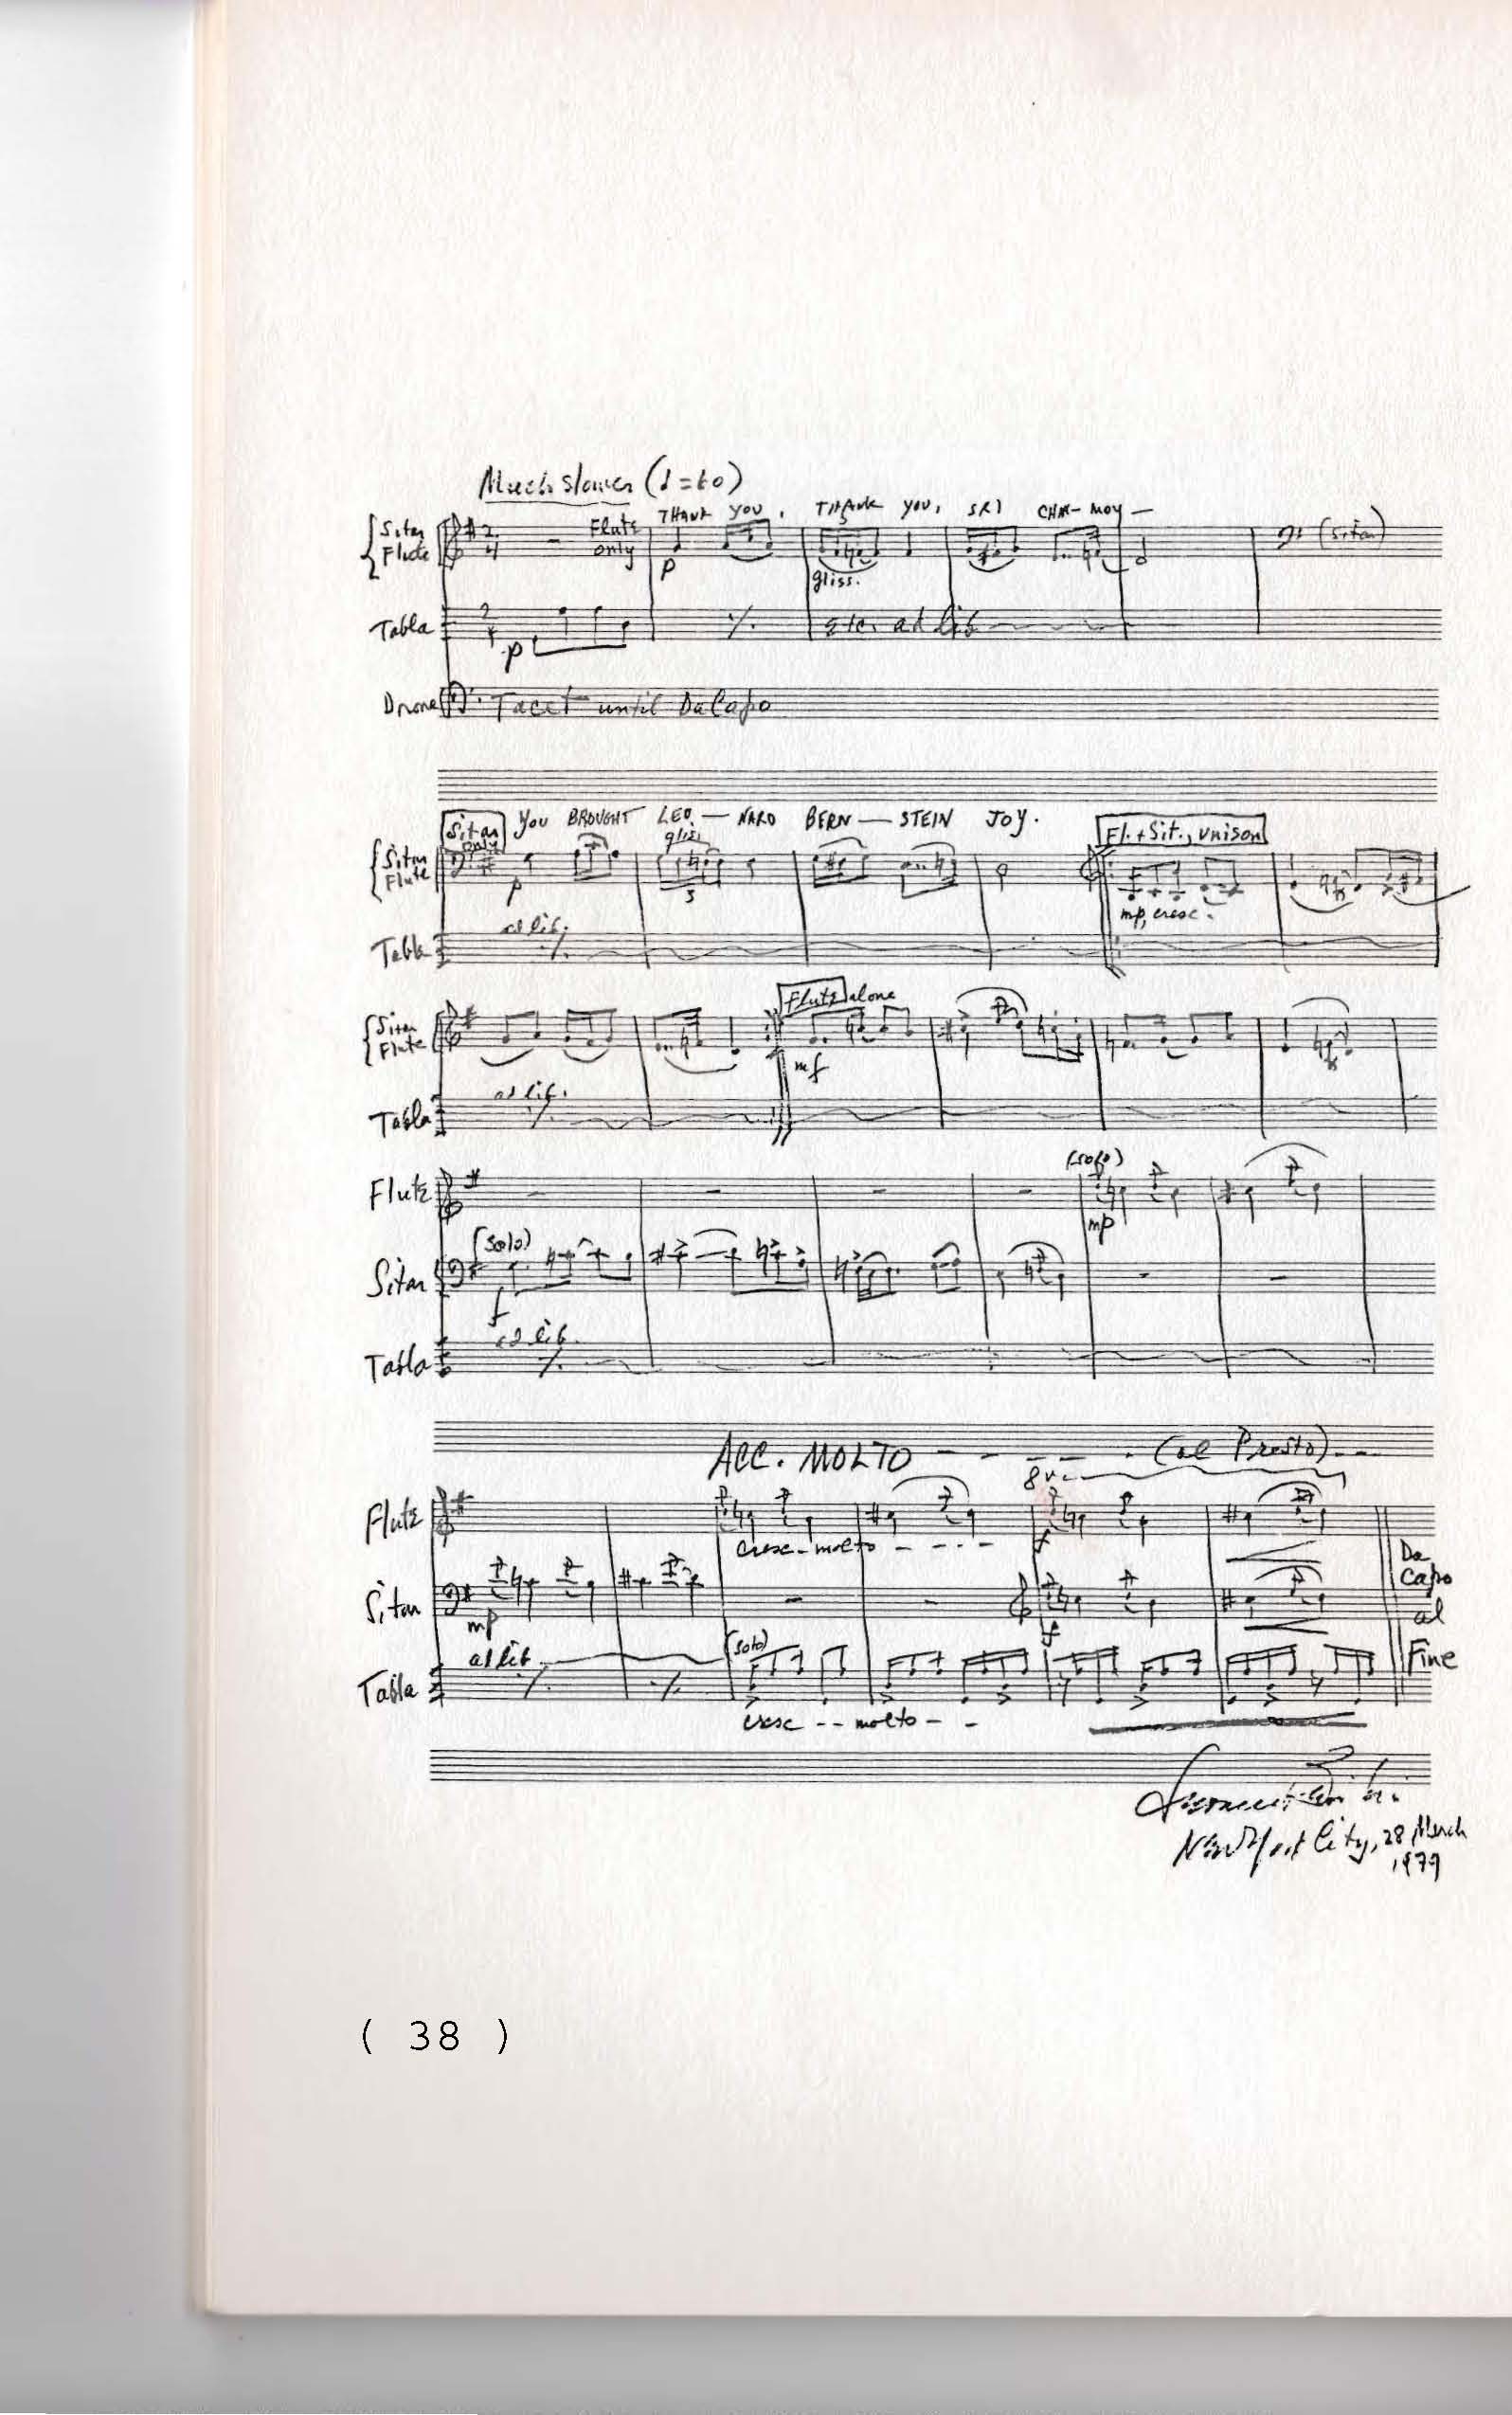 Much slower (♩=60)
Sitar
Flute
Flute
only
THANK YOU, THANK YOU, SRI CHIN-MOY —
2
4
p
5
gliss.
(Sitar)
Tabla
2
4
p
etc. ad lib
Drone
Tacet until Da Capo
Sitar
only
YOU BROUGHT LEO — NARD BERN — STEIN JOY.
Fl. + Sit., unison
Sitar
Flute
gliss
p
5
mp, cresc.
Tabla
ad lib.
Flute alone
Sitar
Flute
mf
Tabla
ad lib.
Flute
(solo)
mp
Sitar
(solo)
f
Tabla
ad lib.
ACC. MOLTO - - - - - (al Presto) - - -
8va
Flute
cresc - molto - - - -
f
Sitar
mp
f
Da
Capo
al
Fine
Tabla
ad lib
(solo)
cresc - - molto - -
New York City, 28 March
1979
( 38 )